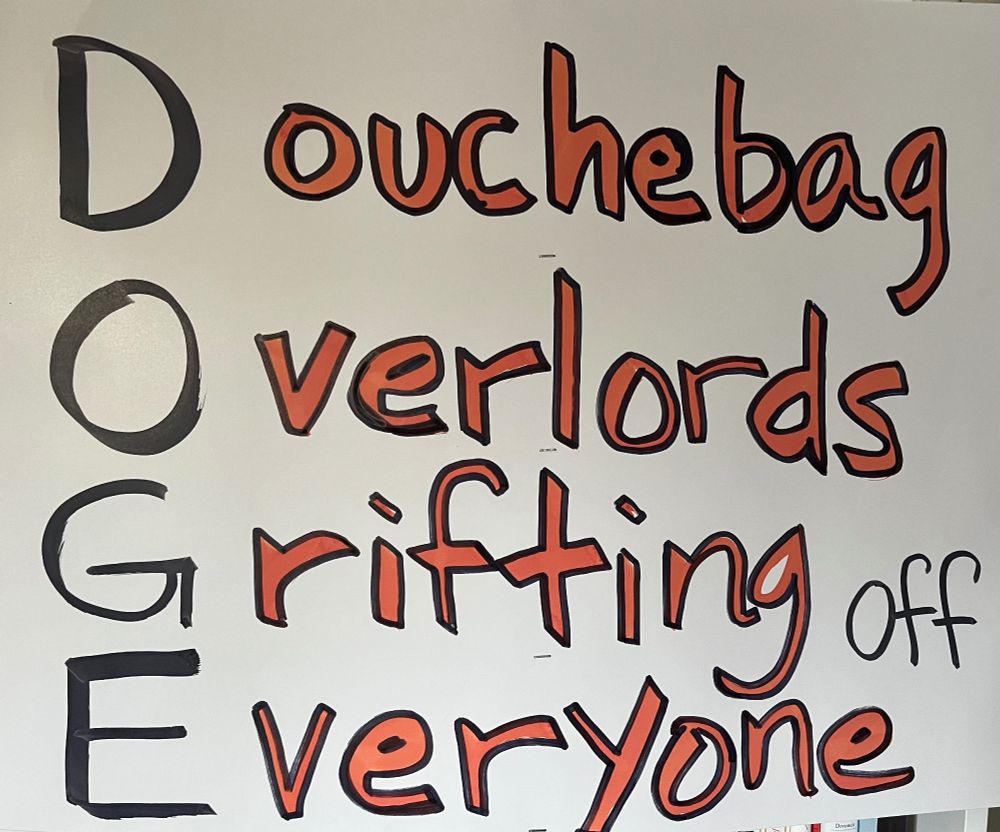 Douchebag
Overlords
Grifting off
Everyone